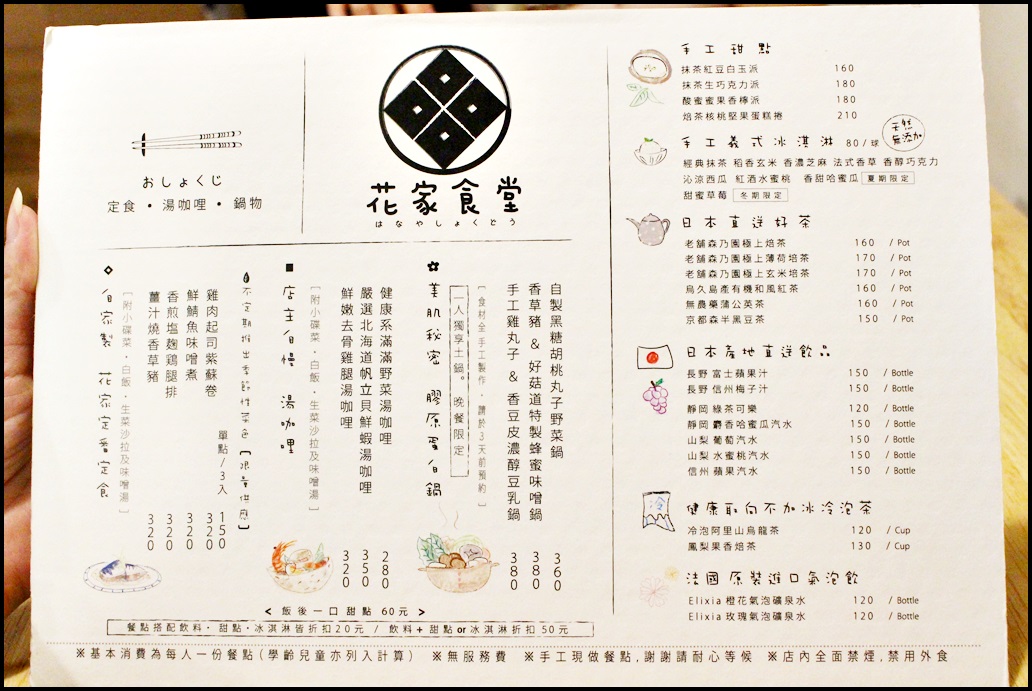 おしょくじ
定食・湯咖哩・鍋物
花家食堂
はなやしょくどう
自家製 花家定番定食
[附小碟菜・白飯・生菜沙拉及味噌湯]
薑汁燒香草豬 320
香煎塩麴鶏腿排 320
鮮鯖魚味噌煮 320
雞肉起司紫蘇卷 320
單點/3入 150
不定期推出季節性菜色[限量供應]
店主自慢 湯咖哩
[附小碟菜・白飯・生菜沙拉及味噌湯]
鮮嫩去骨雞腿湯咖哩 320
嚴選北海道帆立貝鮮蝦湯咖哩 350
健康系滿滿野菜湯咖哩 280
美肌秘密 膠原蛋白鍋
一人獨享土鍋。晚餐限定
[食材全手工製作，請於3天前預約]
手工雞丸子 & 香豆皮濃醇豆乳鍋 380
香草豬 & 好菇道特製蜂蜜味噌鍋 380
自製黑糖胡桃丸子野菜鍋 360
< 飯後一口甜點 60元 >
餐點搭配飲料・甜點・冰淇淋皆折扣20元 / 飲料+甜點or冰淇淋折扣50元
手工甜點
抹茶紅豆白玉派 160
抹茶生巧克力派 180
酸蜜蜜果香檸派 180
焙茶核桃堅果蛋糕捲 210
手工義式冰淇淋 80/球
天然無添加
經典抹茶 稻香玄米 香濃芝麻 法式香草 香醇巧克力
沁涼西瓜 紅酒水蜜桃 香甜哈蜜瓜 夏期限定
甜蜜草莓 冬期限定
日本直送好茶
老舗森乃園極上焙茶 160 / Pot
老舗森乃園極上薄荷焙茶 170 / Pot
老舗森乃園極上玄米焙茶 170 / Pot
鳥久島產有機和風紅茶 160 / Pot
無農藥蒲公英茶 160 / Pot
京都森半黑豆茶 150 / Pot
日本產地直送飲品
長野 富士蘋果汁 150 / Bottle
長野 信州梅子汁 150 / Bottle
靜岡 綠茶可樂 120 / Bottle
靜岡 麝香哈蜜瓜汽水 150 / Bottle
山梨 葡萄汽水 150 / Bottle
山梨 水蜜桃汽水 150 / Bottle
信州 蘋果汽水 150 / Bottle
冷
健康取向不加冰冷泡茶
冷泡阿里山烏龍茶 120 / Cup
鳳梨果香焙茶 130 / Cup
法國原裝進口氣泡飲
Elixia 橙花氣泡礦泉水 120 / Bottle
Elixia 玫瑰氣泡礦泉水 120 / Bottle
※基本消費為每人一份餐點(學齡兒童亦列入計算) ※無服務費 ※手工現做餐點,謝謝請耐心等候 ※店內全面禁煙,禁用外食